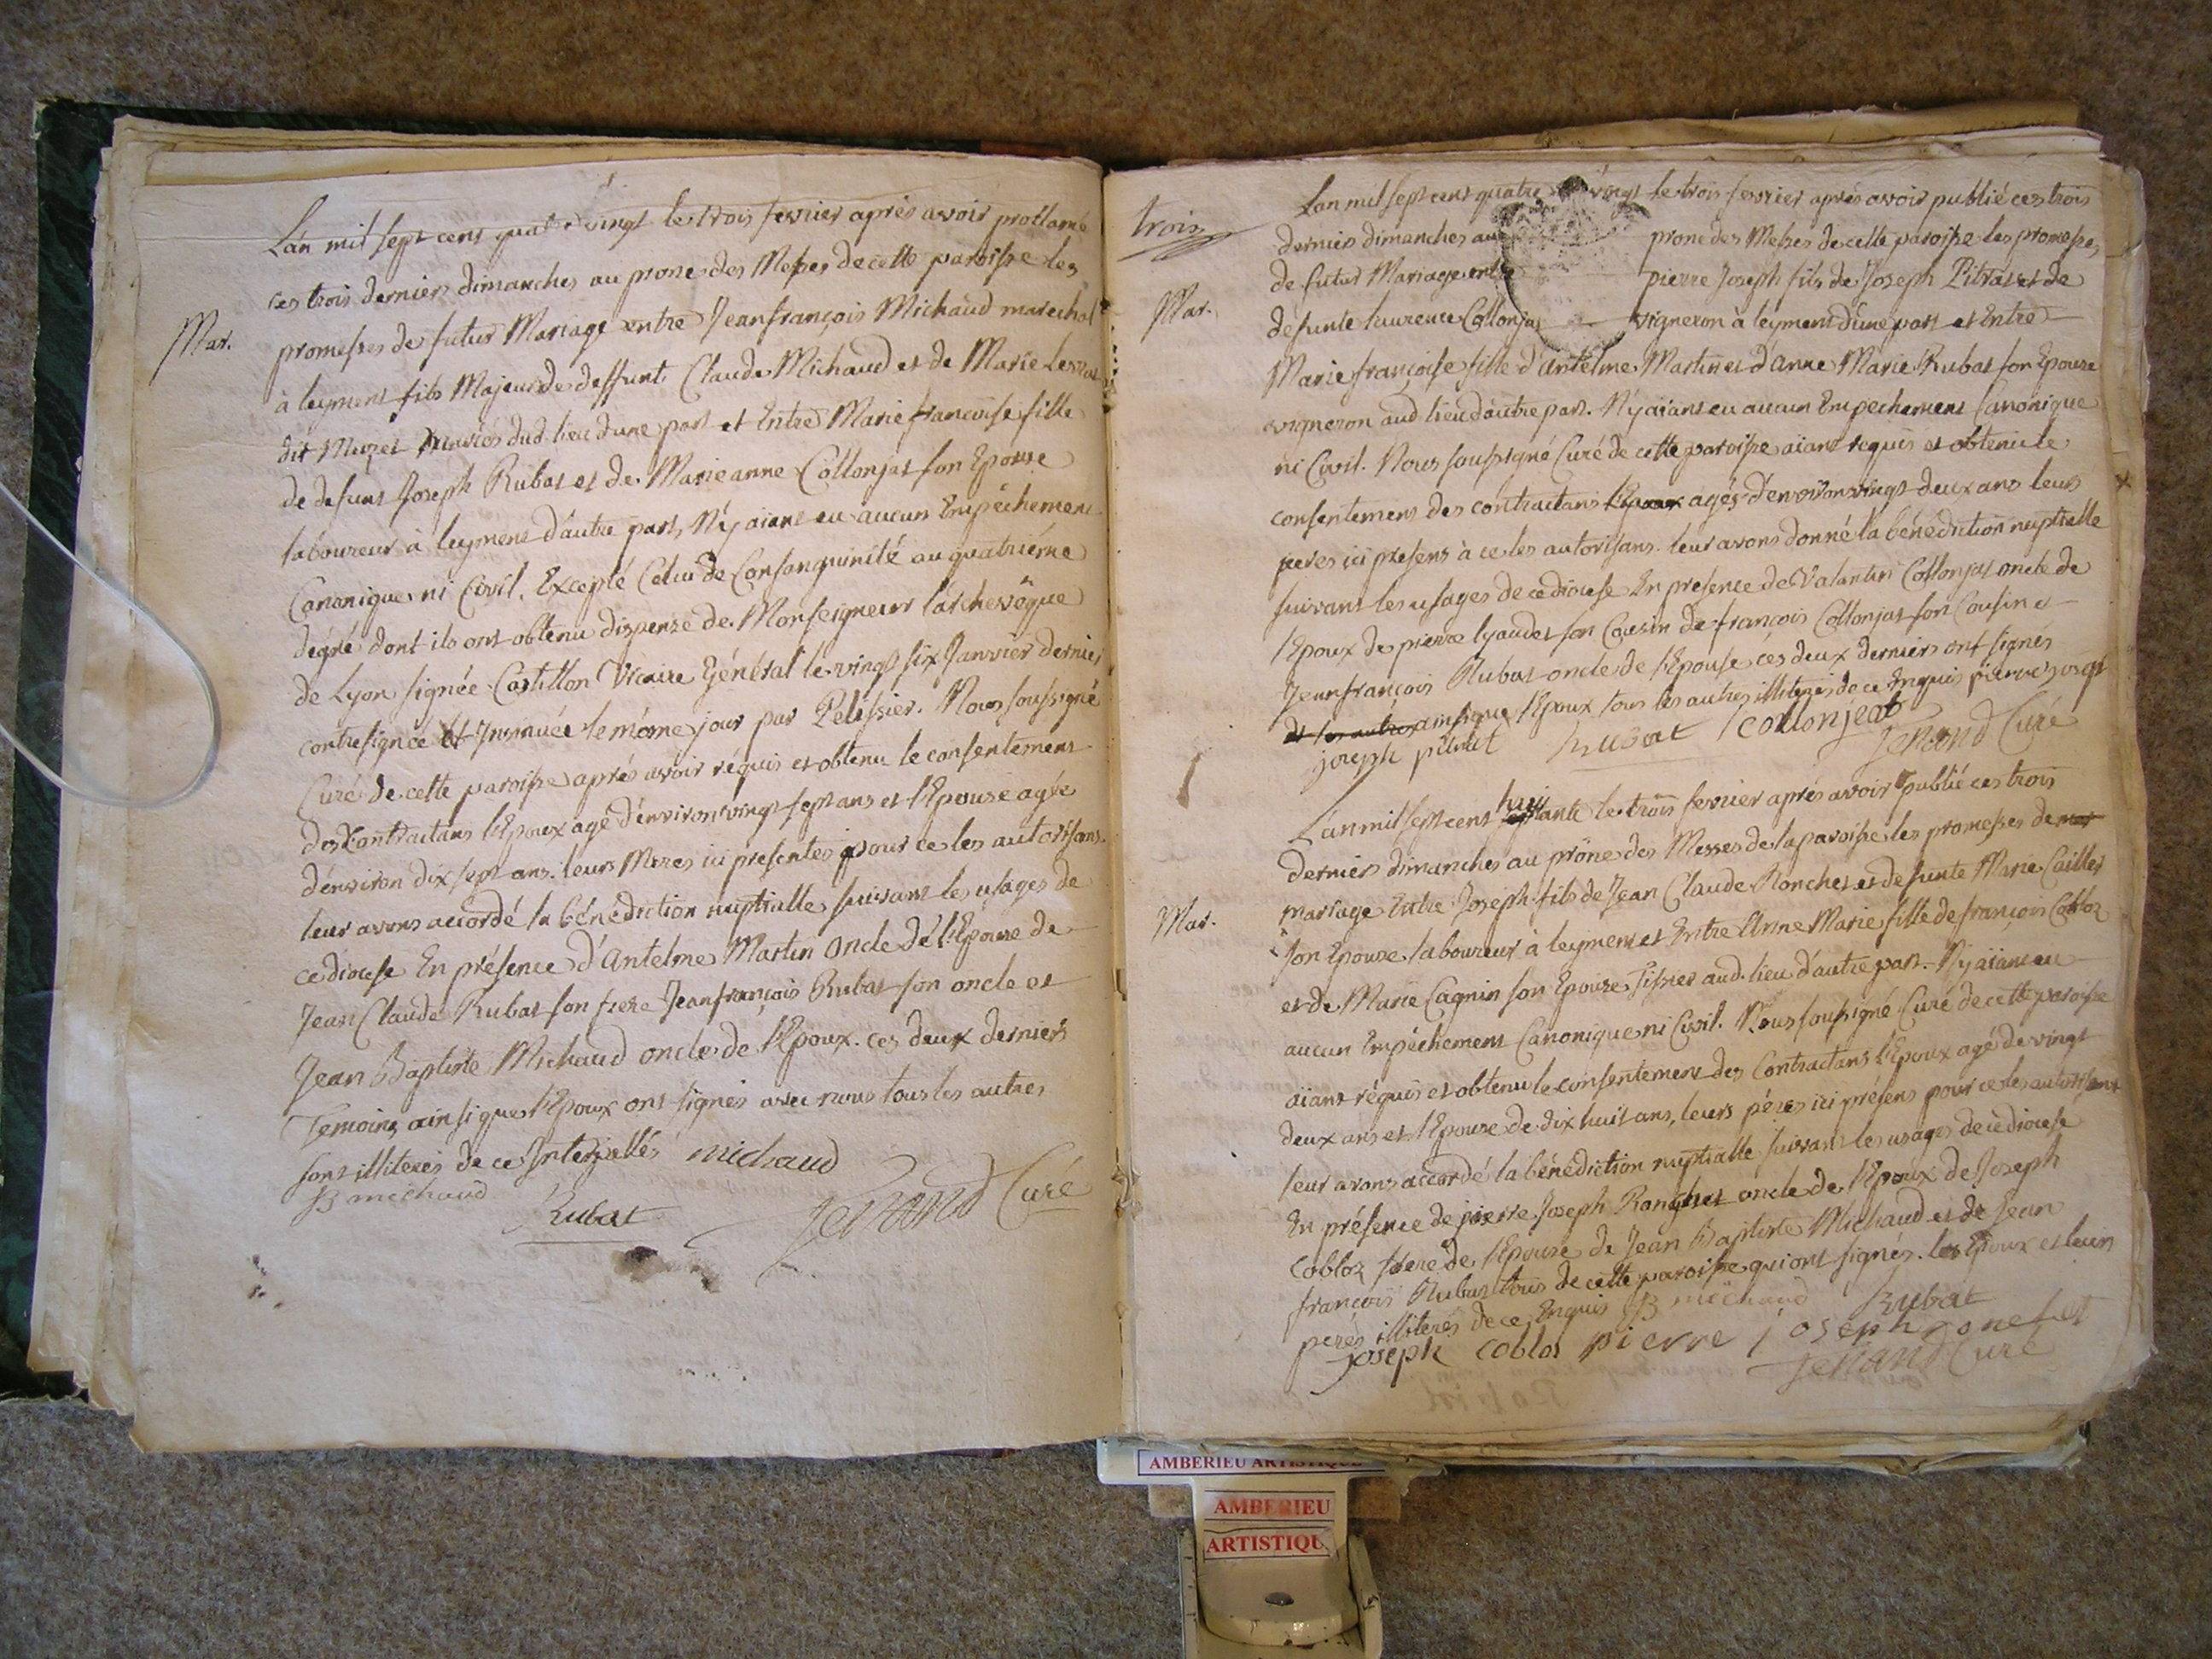 Mar.
L'an mil sept cent quatre vingt le trois fevrier après avoir proclamé
ces trois derniers dimanches au prone des Messes de cette paroisse les
promesses de futur Mariage entre Jean françois Michaud marechal
à leyment fils Majeur de deffunt Claude Michaud et de Marie
dit Muzet dud. lieu d'une part et Entre Marie françoise fille
de defunt Joseph Rubat et de Marie anne Collonjat son Epouse
laboureur à leyment d'autre part, N'y aiant eu aucun Empéchement
Canonique ni Civil. Excepté Celui de Consanguinité au quatriéme
dégré dont ils ont obtenu dispense de Monseigneur l'archevêque
de Lyon signée Castillon Vicaire Général le vingt six Janvier dernier
contresignée et Insinuée le même jour par Pelissier. Nous soussigné
Curé de cette paroisse après avoir réquis et obtenu le consentement
des Contractans l'Epoux agé d'environ vingt sept ans et l'Epouse agée
d'environ dix sept ans. leurs Meres ici présentes pour ce les autorisans.
leur avons accordé la bénédiction nuptialle suivant les usages de
ce diocese En présence d'Antelme Martin Oncle de l'Epouse de
Jean Claude Rubat son frere Jean françois Rubat son oncle et
Jean Baptiste Michaud oncle de l'Epoux. ces deux derniers
Temoins ainsi que l'Epoux ont signés avec nous tous les autres
sont illiterés de ce Interpellés michaud
JB michaud
Rubat Jenand Curé
trois
Mar.
L'an mil sept cent quatre vingt le trois fevrier après avoir publié ces trois
derniers dimanches au prone des Messes de cette paroisse les promesses
de futur Mariage entre pierre Joseph fils de Joseph Pitrat et de
défunte laurence Collonjat vigneron à leyment d'une part et Entre
Marie françoise fille d'Antelme Martin et d'anne Marie Rubat son Epouse
vigneron aud lieu d'autre part. N'y aiant eu aucun Empechement Canonique
ni Civil. Nous soussigné Curé de cette paroisse aiant requis et obtenu le
consentement des contractans l'Epoux agés d'environ vingt deux ans leurs
peres ici presens à ce les autorisans. leur avons donné la bénediction nuptialle
suivant les usages de ce diocese En presence de Valantin Collonjat oncle de
l'Epoux de pierre lyaudet son Cousin de françois Collonjat son Cousin et
Jean françois Rubat oncle de l'Epouse ces deux derniers ont signés
et les autres ainsi que l'Epoux tous les autres illiterés de ce Enquis pierre joseph
joseph pitrat Rubat f collonjeat Jenand Curé
Mar.
L'an mil sept cent huitante le trois fevrier après avoir publié ces trois
derniers dimanches au prône des Messes de la paroisse les promesses de mar
mariage Entre Joseph fils de Jean Claude Ronchet et defunte Marie Caillet
son Epouse laboureur à leyment et Entre Anne Marie fille de françois Cobloz
et de Marie Cagnin son Epouse Tissier aud. lieu d'autre part. N'y aiant eu
aucun Empéchement Canonique ni Civil. Nous soussigné Curé de cette paroisse
aiant réquis et obtenu le consentement des Contractans l'Epoux agé de vingt
deux ans et l'Epouse de dix huit ans, leurs péres ici présens pour ce les autorisans
leur avons accordé la bénédiction nuptialle suivant les usages de ce diocese
En présence de pierre Joseph Ronchet oncle de l'Epoux de Joseph
Cobloz frere de l'Epouse de Jean Baptiste Michaud et de Jean
françois Rubat tous de cette paroisse qui ont signés. les Epoux et leurs
peres illiterés de ce Enquis JB michaud Rubat
joseph coblos pierre joseph ronchet
Jenand Curé
AMBERIEU ARTISTIQUE
AMBERIEU
ARTISTIQU